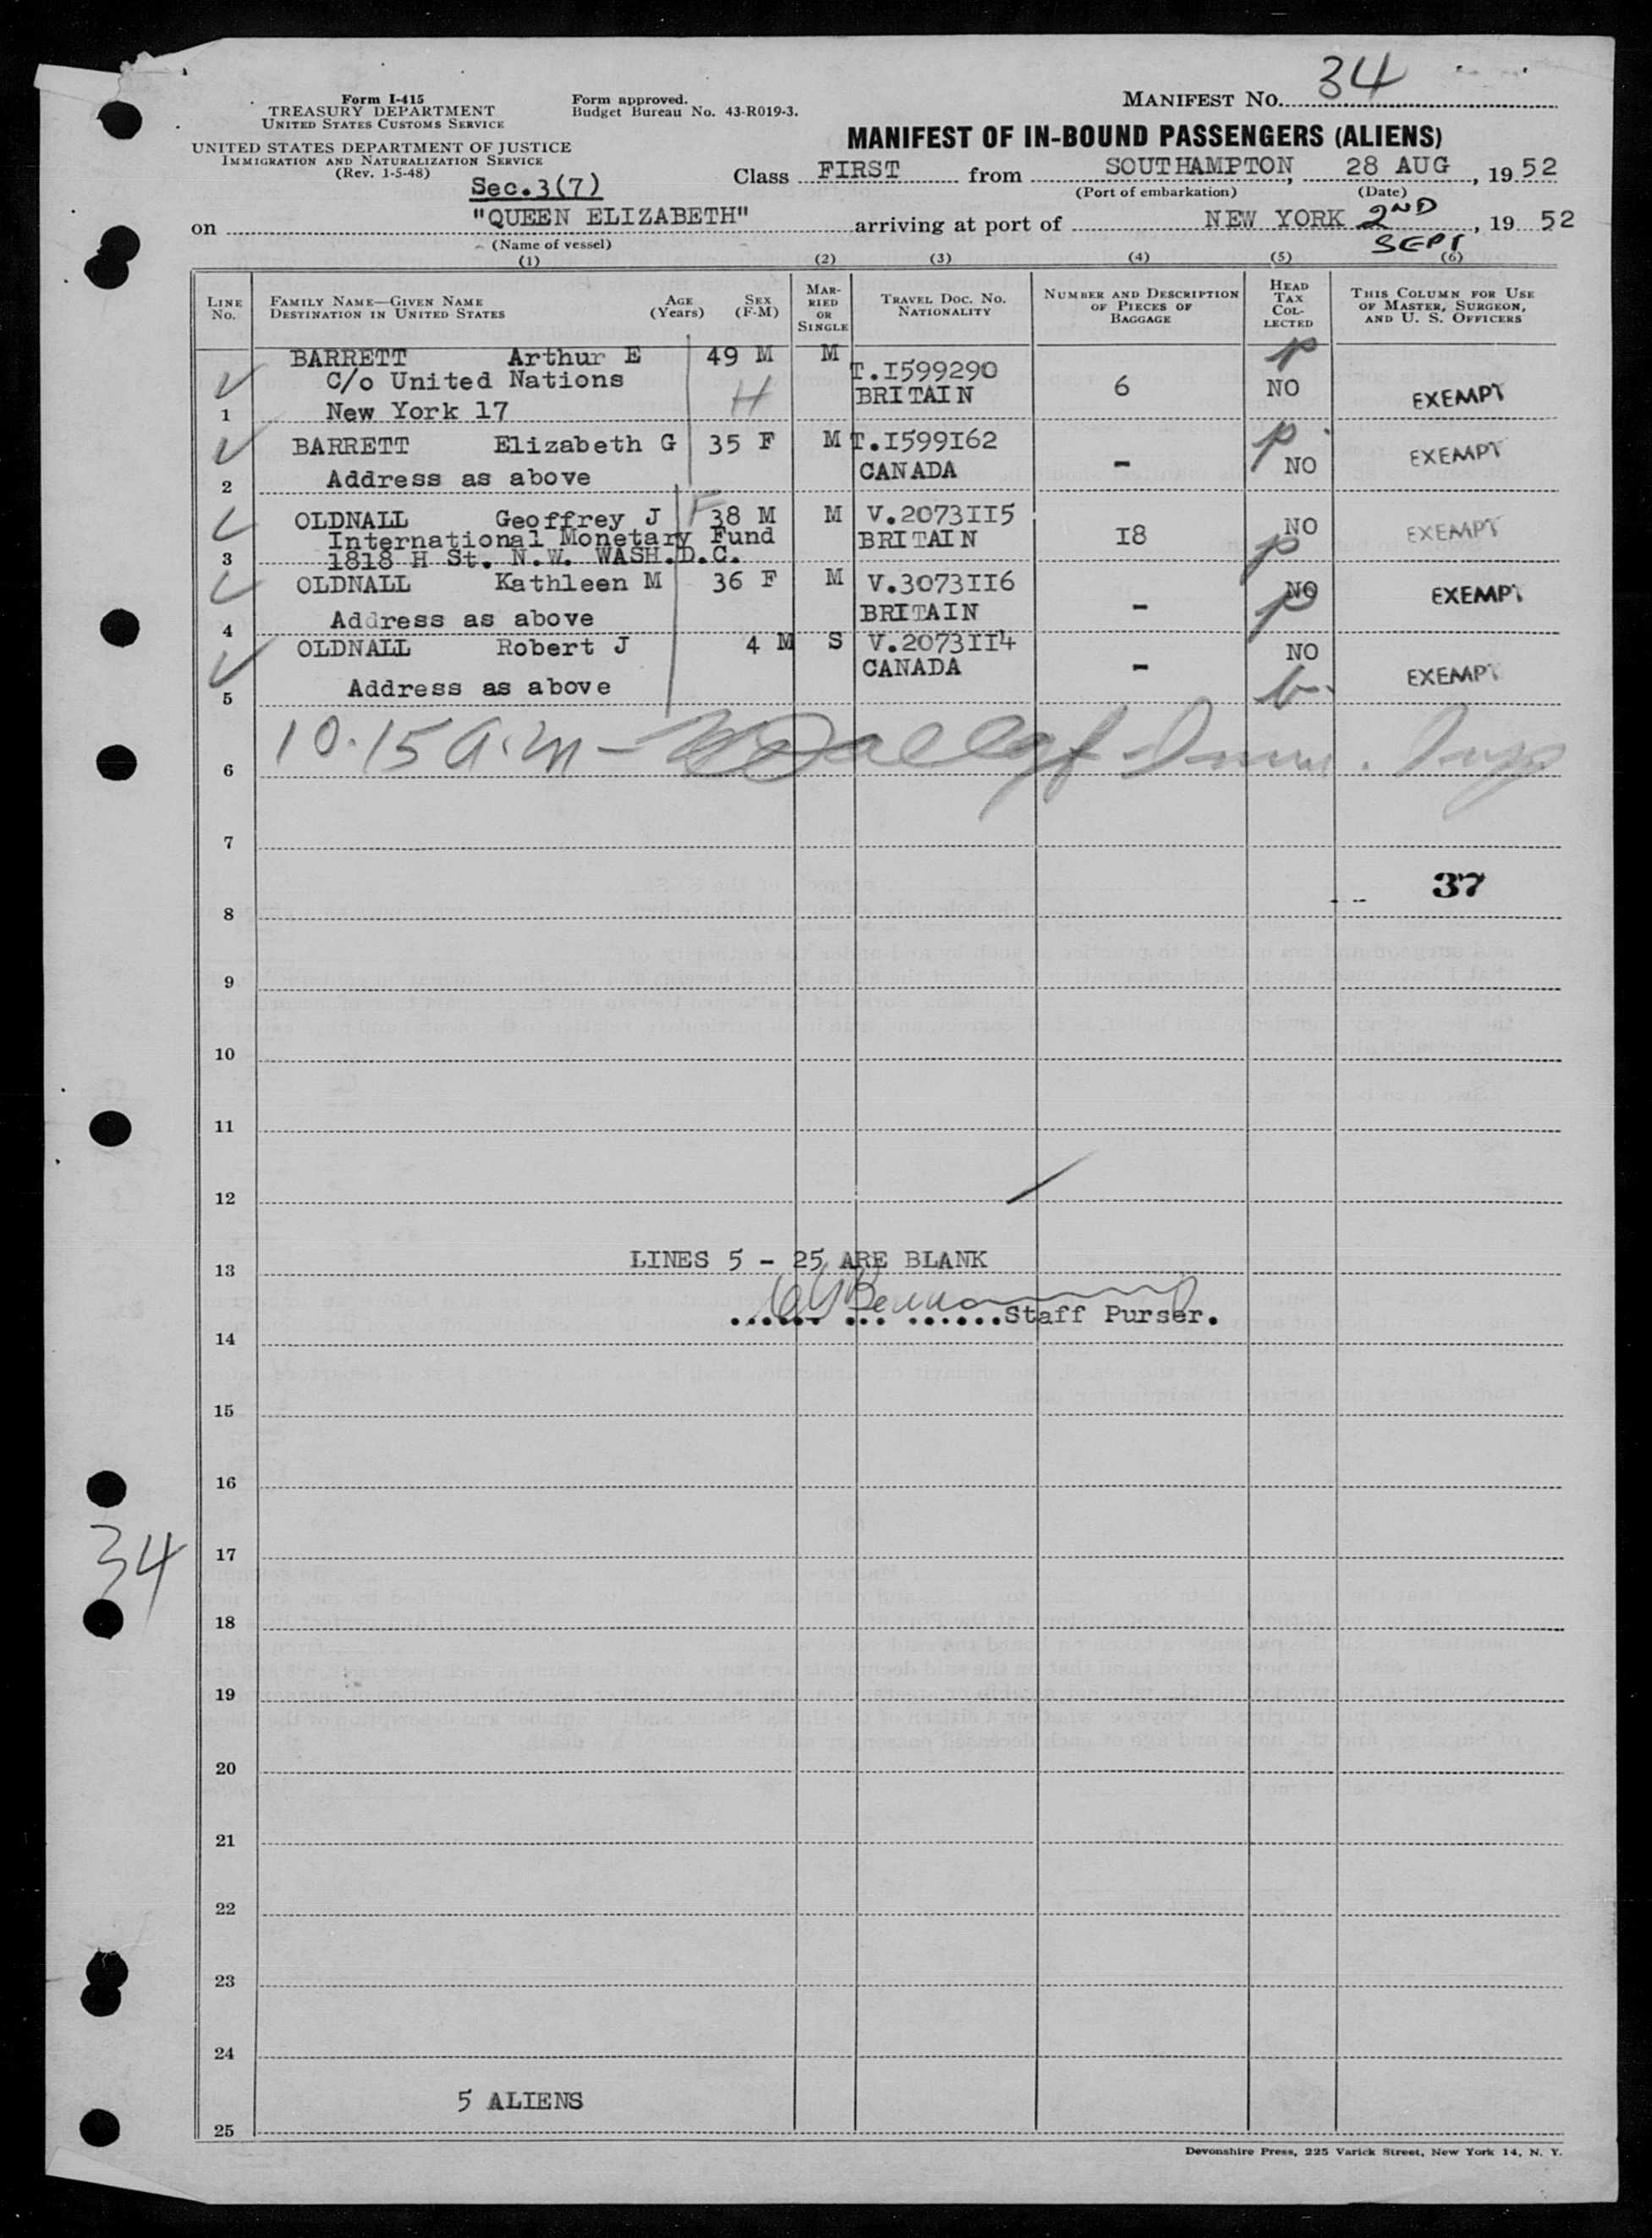 34
Form I-415
TREASURY DEPARTMENT
UNITED STATES CUSTOMS SERVICE
Form approved.
Budget Bureau No. 43-R019-3.
MANIFEST NO. 34
UNITED STATES DEPARTMENT OF JUSTICE
IMMIGRATION AND NATURALIZATION SERVICE
(Rev. 1-5-48)
MANIFEST OF IN-BOUND PASSENGERS (ALIENS)
Sec.3(7)
Class FIRST from SOUTHAMPTON, 28 AUG, 1952
(Port of embarkation) (Date)
on "QUEEN ELIZABETH" arriving at port of NEW YORK 2ND SEPT, 19 52
(Name of vessel)
(1) (2) (3) (4) (5) (6)
LINE NO. FAMILY NAME—GIVEN NAME DESTINATION IN UNITED STATES AGE (Years) SEX (F-M) MARRIED OR SINGLE TRAVEL DOC. NO. NATIONALITY NUMBER AND DESCRIPTION OF PIECES OF BAGGAGE HEAD TAX COLLECTED THIS COLUMN FOR USE OF MASTER, SURGEON, AND U. S. OFFICERS
BARRETT Arthur E 49 M M T.I599290 p
C/o United Nations H BRITAIN 6 NO EXEMPT
1 New York 17
BARRETT Elizabeth G 35 F M T.I599I62 p EXEMPT
2 Address as above CANADA - NO
OLDNALL Geoffrey J F 38 M M V.2073II5 NO EXEMPT
International Monetary Fund BRITAIN I8 p
3 1818 H St. N.W. WASH.D.C.
OLDNALL Kathleen M 36 F M V.3073II6 NO EXEMPT
4 Address as above BRITAIN - p
OLDNALL Robert J 4 M S V.2073II4 NO
5 Address as above CANADA - EXEMPT
6 10.15 a.m -
7
37
8
9
10
11
12
13 LINES 5 - 25 ARE BLANK
14 Staff Purser.
15
16
34
17
18
19
20
21
22
23
24
5 ALIENS
25
Devonshire Press, 225 Varick Street, New York 14, N. Y.